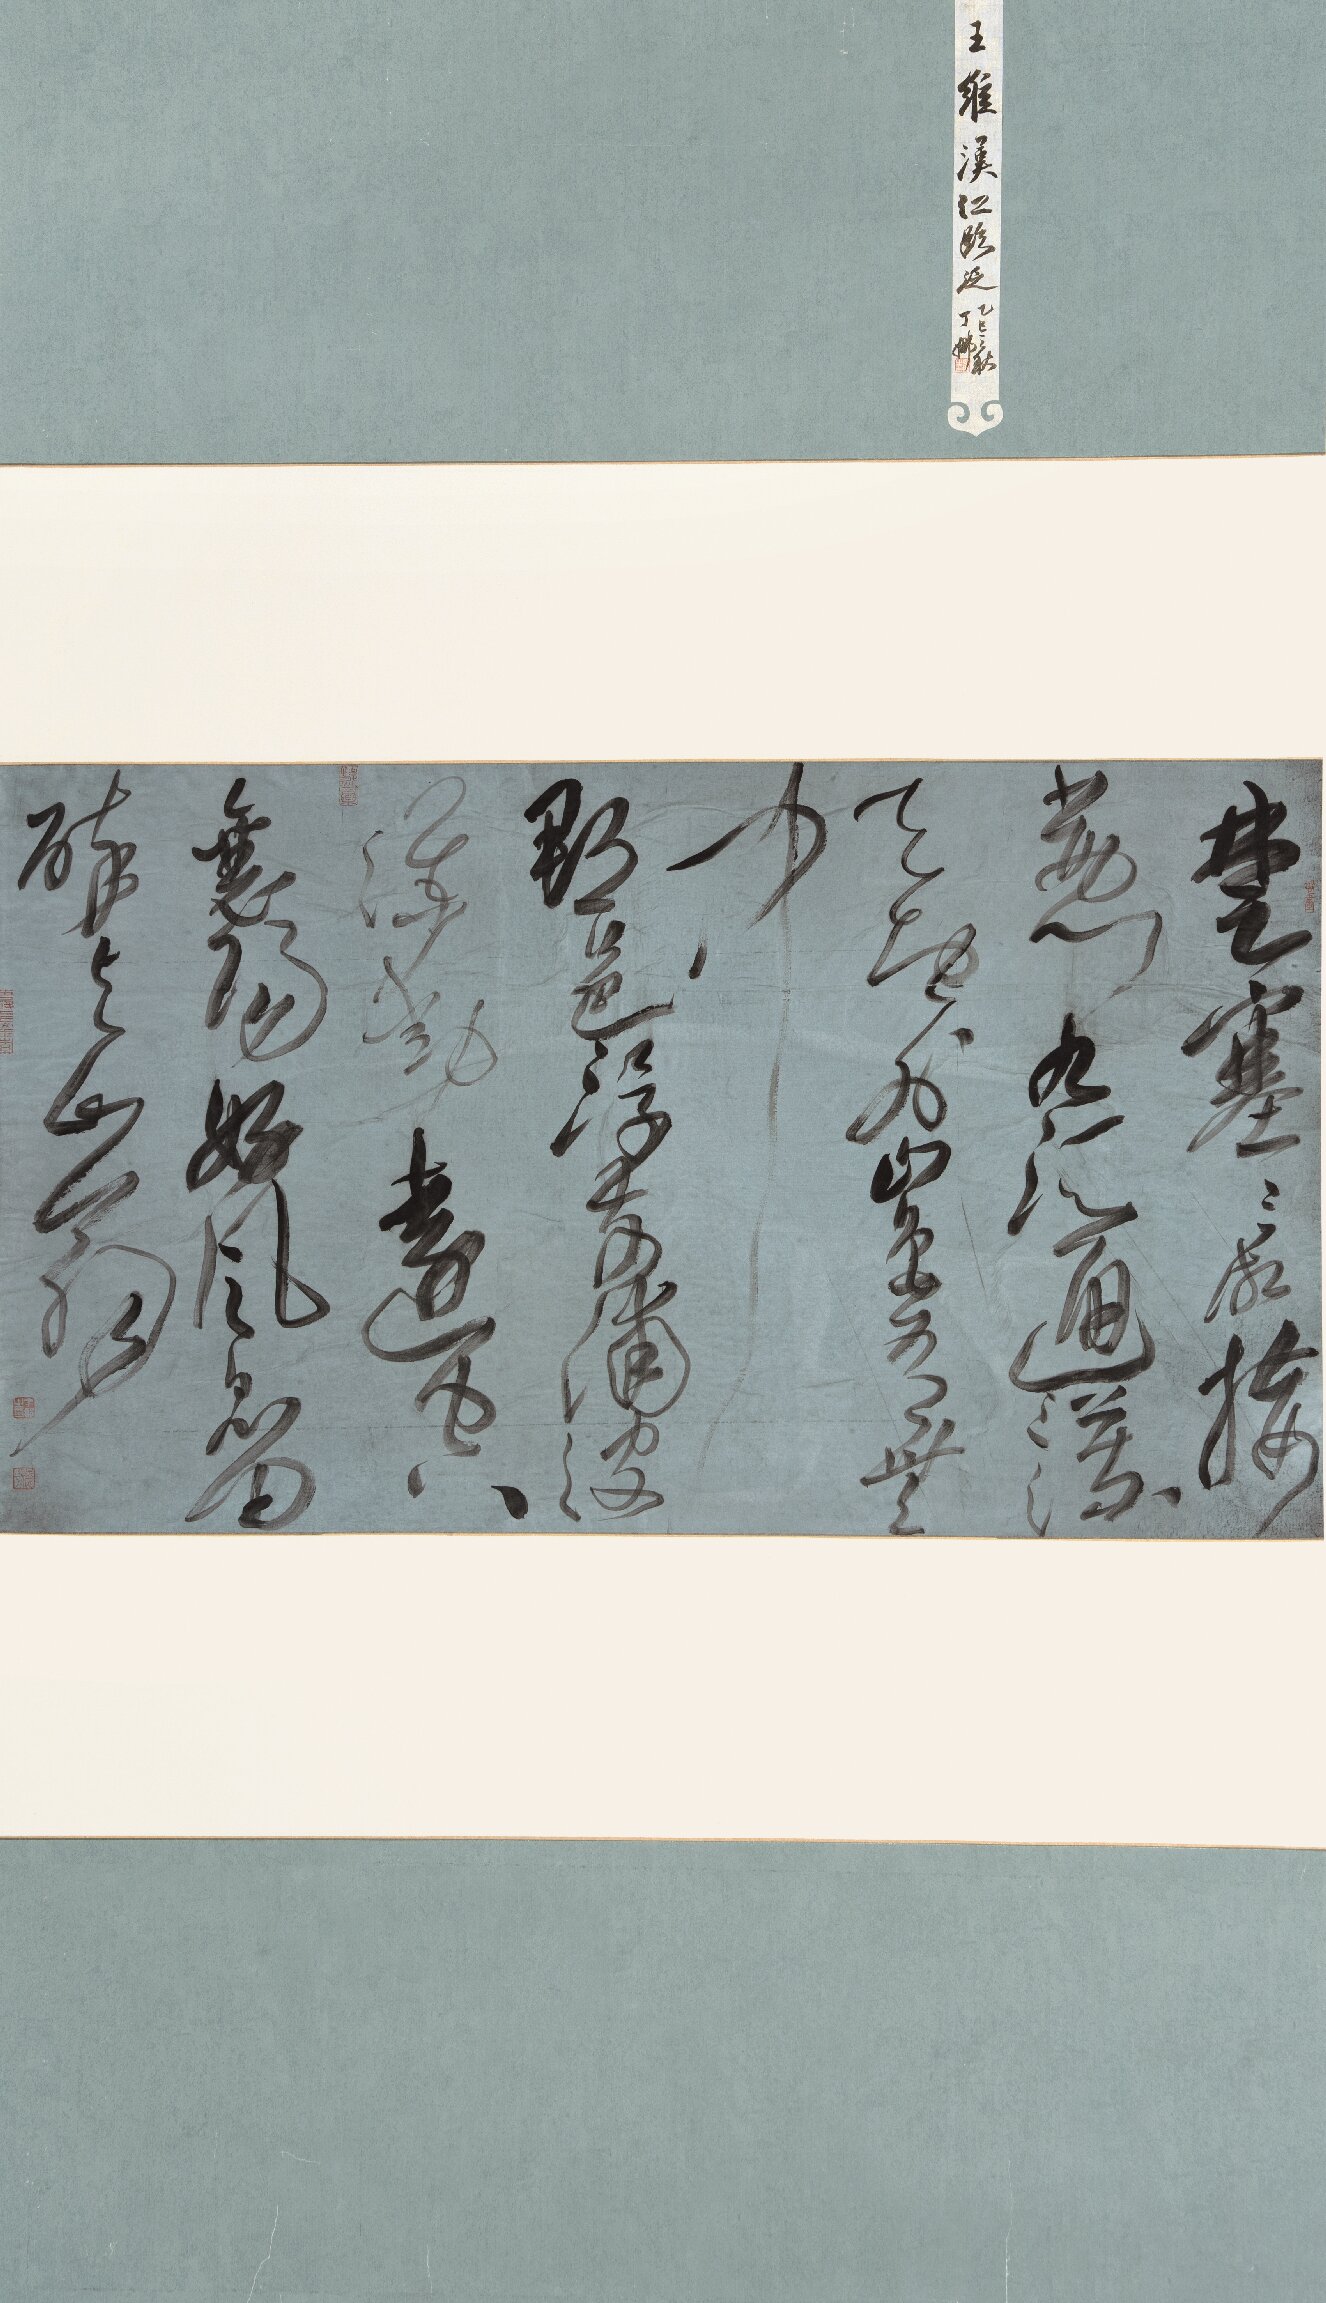 王維漢江臨泛
乙巳秋
丁
楚塞三湘接
荊門九派通江流
天地外山色有無
中
郡邑浮前浦波
瀾動遠空
襄陽好風日留
醉與山翁